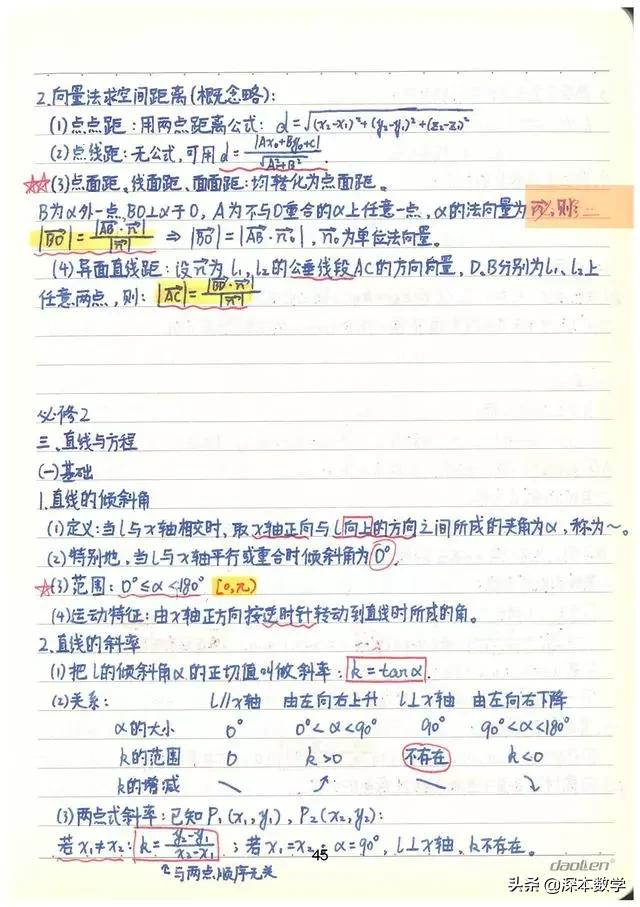 2.向量法求空间距离(概念略):
(1)点点距:用两点距离公式: d=√(x₂-x₁)²+(y₂-y₁)²+(z₂-z₁)²
(2)点线距:无公式,可用d=|Ax₀+By₀+C|/√A²+B².
☆☆(3)点面距、线面距、面面距:均转化为点面距。
B为α外一点,BO⊥α于O,A为不与O重合的α上任意一点,α的法向量为n⃗,则:
|BO⃗|=|AB⃗·n⃗|/|n⃗| ⇒ |BO⃗|=|AB⃗·n⃗₀|,n⃗₀为单位法向量。
(4)异面直线距:设n⃗为l₁,l₂的公垂线段AC的方向向量,D、B分别为l₁、l₂上
任意两点,则: |AC⃗|=|BD⃗·n⃗|/|n⃗|
必修2
三、直线与方程
(一)基础
1.直线的倾斜角
(1)定义:当l与x轴相交时,取x轴正向与l向上的方向之间所成的夹角为α,称为~。
(2)特别地,当l与x轴平行或重合时倾斜角为0°.
☆(3)范围:0°≤α<180° [0,π)
(4)运动特征:由x轴正方向按逆时针转动到直线时所成的角。
2.直线的斜率
(1)把l的倾斜角α的正切值叫做斜率:k=tanα.
(2)关系: l∥x轴 由左向右上升 l⊥x轴 由左向右下降
α的大小 0° 0°<α<90° 90° 90°<α<180°
k的范围 0 k>0 不存在 k<0
k的增减 ╲ ↗ ╲ ↘
(3)两点式斜率:已知P₁(x₁,y₁),P₂(x₂,y₂):
若x₁≠x₂:k=y₂-y₁/x₂-x₁;若x₁=x₂:α=90°,l⊥x轴,k不存在。
与两点顺序无关
45
daolen
头条@深本数学